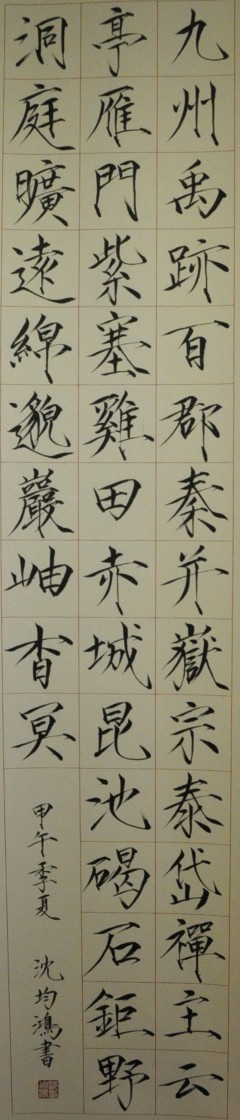 九州禹跡百郡秦并嶽宗泰岱禪主云
亭雁門紫塞雞田赤城昆池碣石鉅野
洞庭曠遠綿邈巖岫杳冥
甲午季夏 沈均鴻書